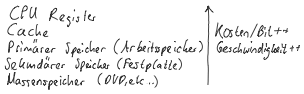 CPU Register
Cache
Primärer Speicher (Arbeitsspeicher)
Sekundärer Speicher (Festplatte)
Massenspeicher (DVD, etc...)
Kosten/Bit ++
Geschwindigkeit ++